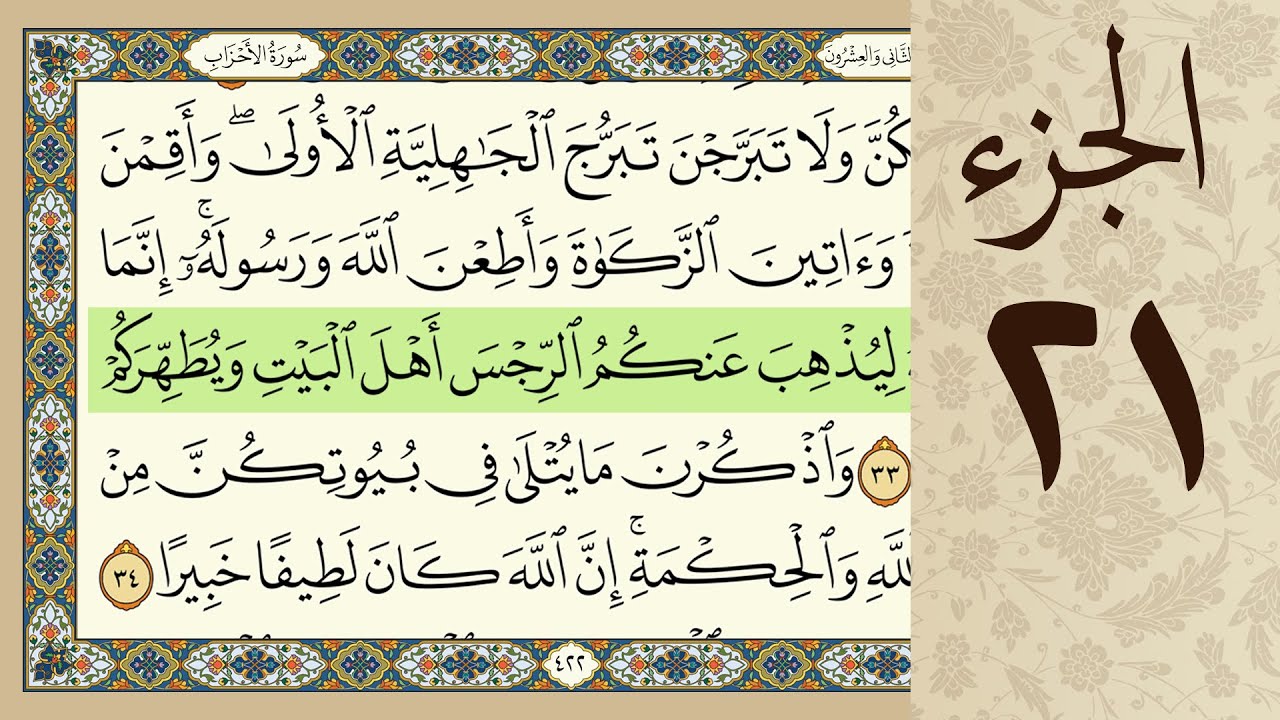 سُورَةُ الأَحْزَابِ
الثَّانِي وَالعِشْرُونَ
كُنَّ وَلَا تَبَرَّجْنَ تَبَرُّجَ ٱلْجَٰهِلِيَّةِ ٱلْأُولَىٰۖ وَأَقِمْنَ
وَءَاتِينَ ٱلزَّكَوٰةَ وَأَطِعْنَ ٱللَّهَ وَرَسُولَهُۥٓۚ إِنَّمَا
لِيُذْهِبَ عَنكُمُ ٱلرِّجْسَ أَهْلَ ٱلْبَيْتِ وَيُطَهِّرَكُمْ
٣٣ وَٱذْكُرْنَ مَا يُتْلَىٰ فِى بُيُوتِكُنَّ مِنْ
ٱللَّهِ وَٱلْحِكْمَةِۚ إِنَّ ٱللَّهَ كَانَ لَطِيفًا خَبِيرًا ٣٤
٤٢٢
الجزء
٢١